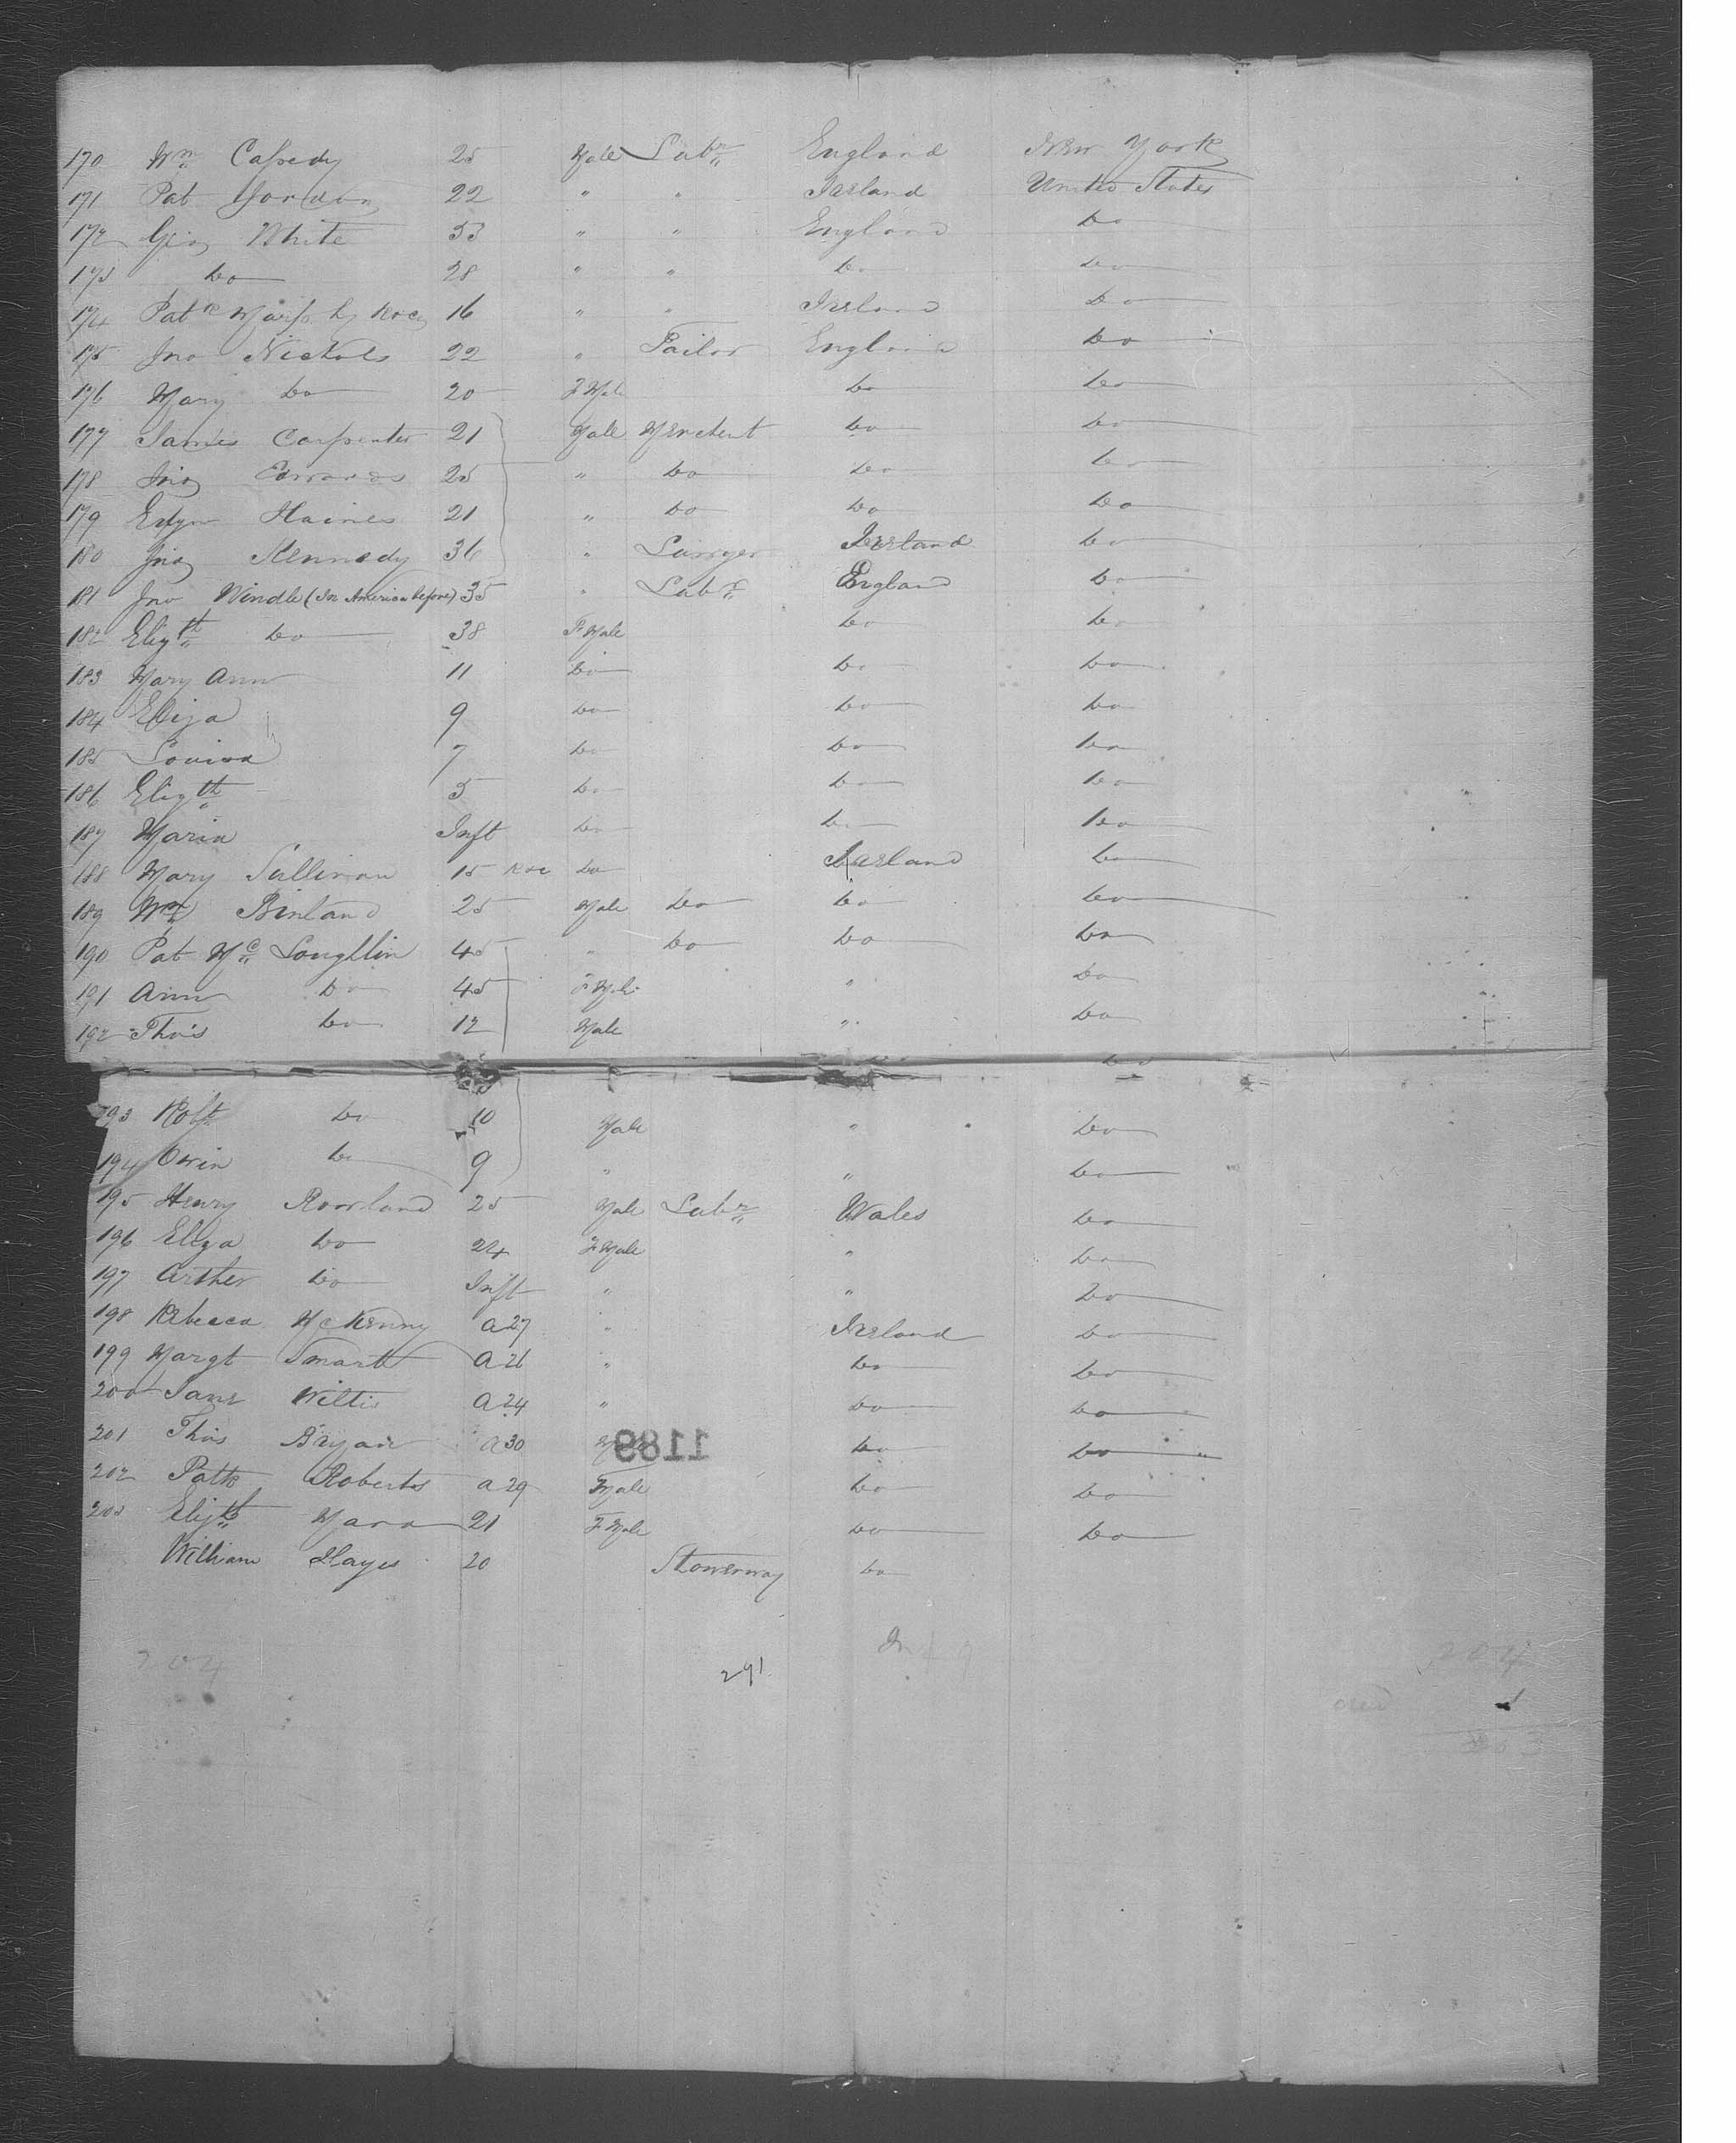 170 Wm Cassedy 25 Male Labr England New York
171 Pat Jordan 22 " " Ireland United States
172 Geo White 33 " " England Do
173 Do 28 " " Do Do
174 Patk Murphy 16 " " Ireland Do
175 Jno Nichols 22 " Tailor England Do
176 Mary Do 20 FMale Do Do
177 James Carpenter 21 Male Merchent Do Do
178 Jno Edwards 25 " Do Do Do
179 Haines 21 " Do Do Do
180 Jno Kennedy 36 " Ireland Do
181 Jno Windle (In America before) 35 " Labr England Do
182 Elizth Do 38 FMale Do Do
183 Mary Ann 11 Do Do Do
184 Eliza 9 Do Do Do
185 Louisa 7 Do Do Do
186 Elizth 5 Do Do Do
187 Maria Inft Do Do Do
188 Mary Sullivan 15 Do Ireland Do
189 Wm 25 Male Do Do Do
190 Pat Mc Loughlin 45 " Do Do Do
191 Ann Do 45 FMale " Do
192 Thos Do 12 Male " Do
Do
193 Robt Do 10 Male " Do
194 Owin Do 9 " " Do
195 Henry Rowland 25 Male Labr Wales Do
196 Eliza Do 24 FMale " Do
197 Arther Do Inft " " Do
198 Rebecca McKenny a 27 " Ireland Do
199 Margt Smart a 26 " Do Do
200 Jane Wiltis a 24 " Do Do
201 Thos Bryan a 30 Do Do
1189
202 Patk Roberts a 29 Male Do Do
203 Elizth 21 FMale Do Do
William Hayes 20 Stowerway Do
204 291 Inf 9 204
died 1
203